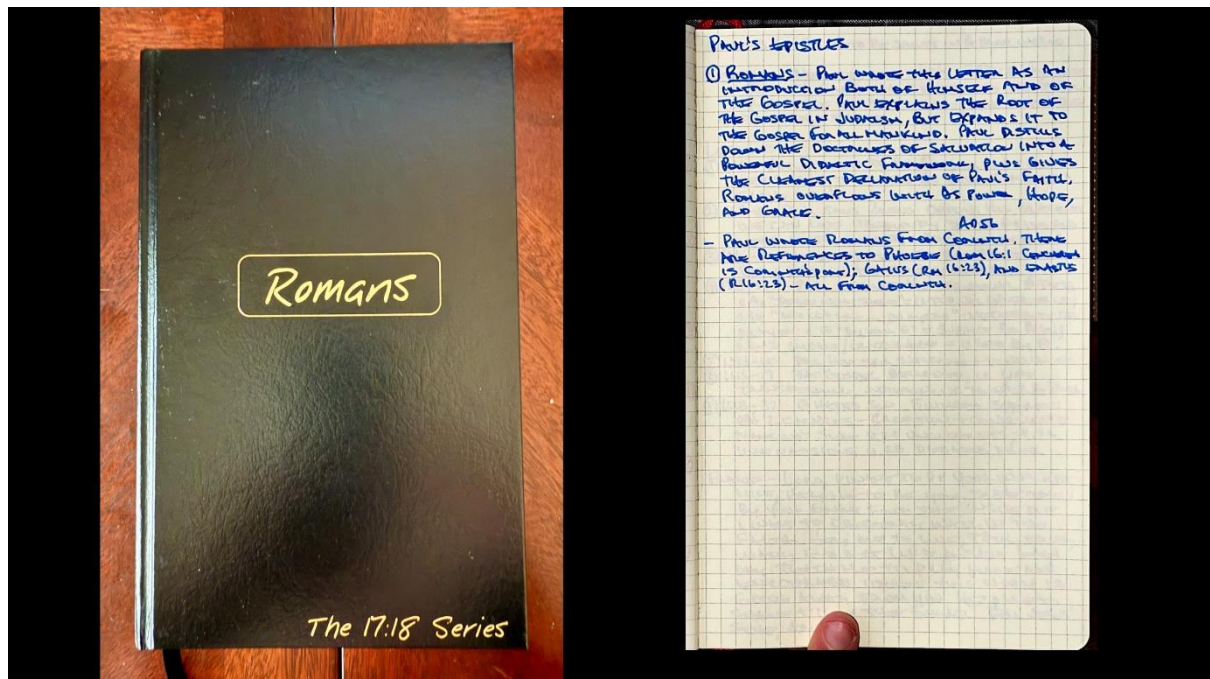 Romans
The 17:18 Series
PAUL'S EPISTLES
① ROMANS - PAUL WROTE THIS LETTER AS AN
INTRODUCTION BOTH OF HIMSELF AND OF
THE GOSPEL. PAUL EXPLAINS THE ROOT OF
THE GOSPEL IN JUDAISM, BUT EXPANDS IT TO
THE GOSPEL FOR ALL MANKIND. PAUL DISTILLS
DOWN THE DOCTRINES OF SALVATION INTO A
POWERFUL DIDACTIC FRAMEWORK, PLUS GIVES
THE CLEAREST DECLARATION OF PAUL'S FAITH.
ROMANS OVERFLOWS WITH POWER, HOPE,
AND GRACE.
AD56
- PAUL WROTE ROMANS FROM CORINTH. THERE
ARE REFERENCES TO PHOEBE (ROM 16:1
IS CORINTH'S PORT); GAIUS (RM 16:23), AND
(R16:23) - ALL FROM CORINTH.